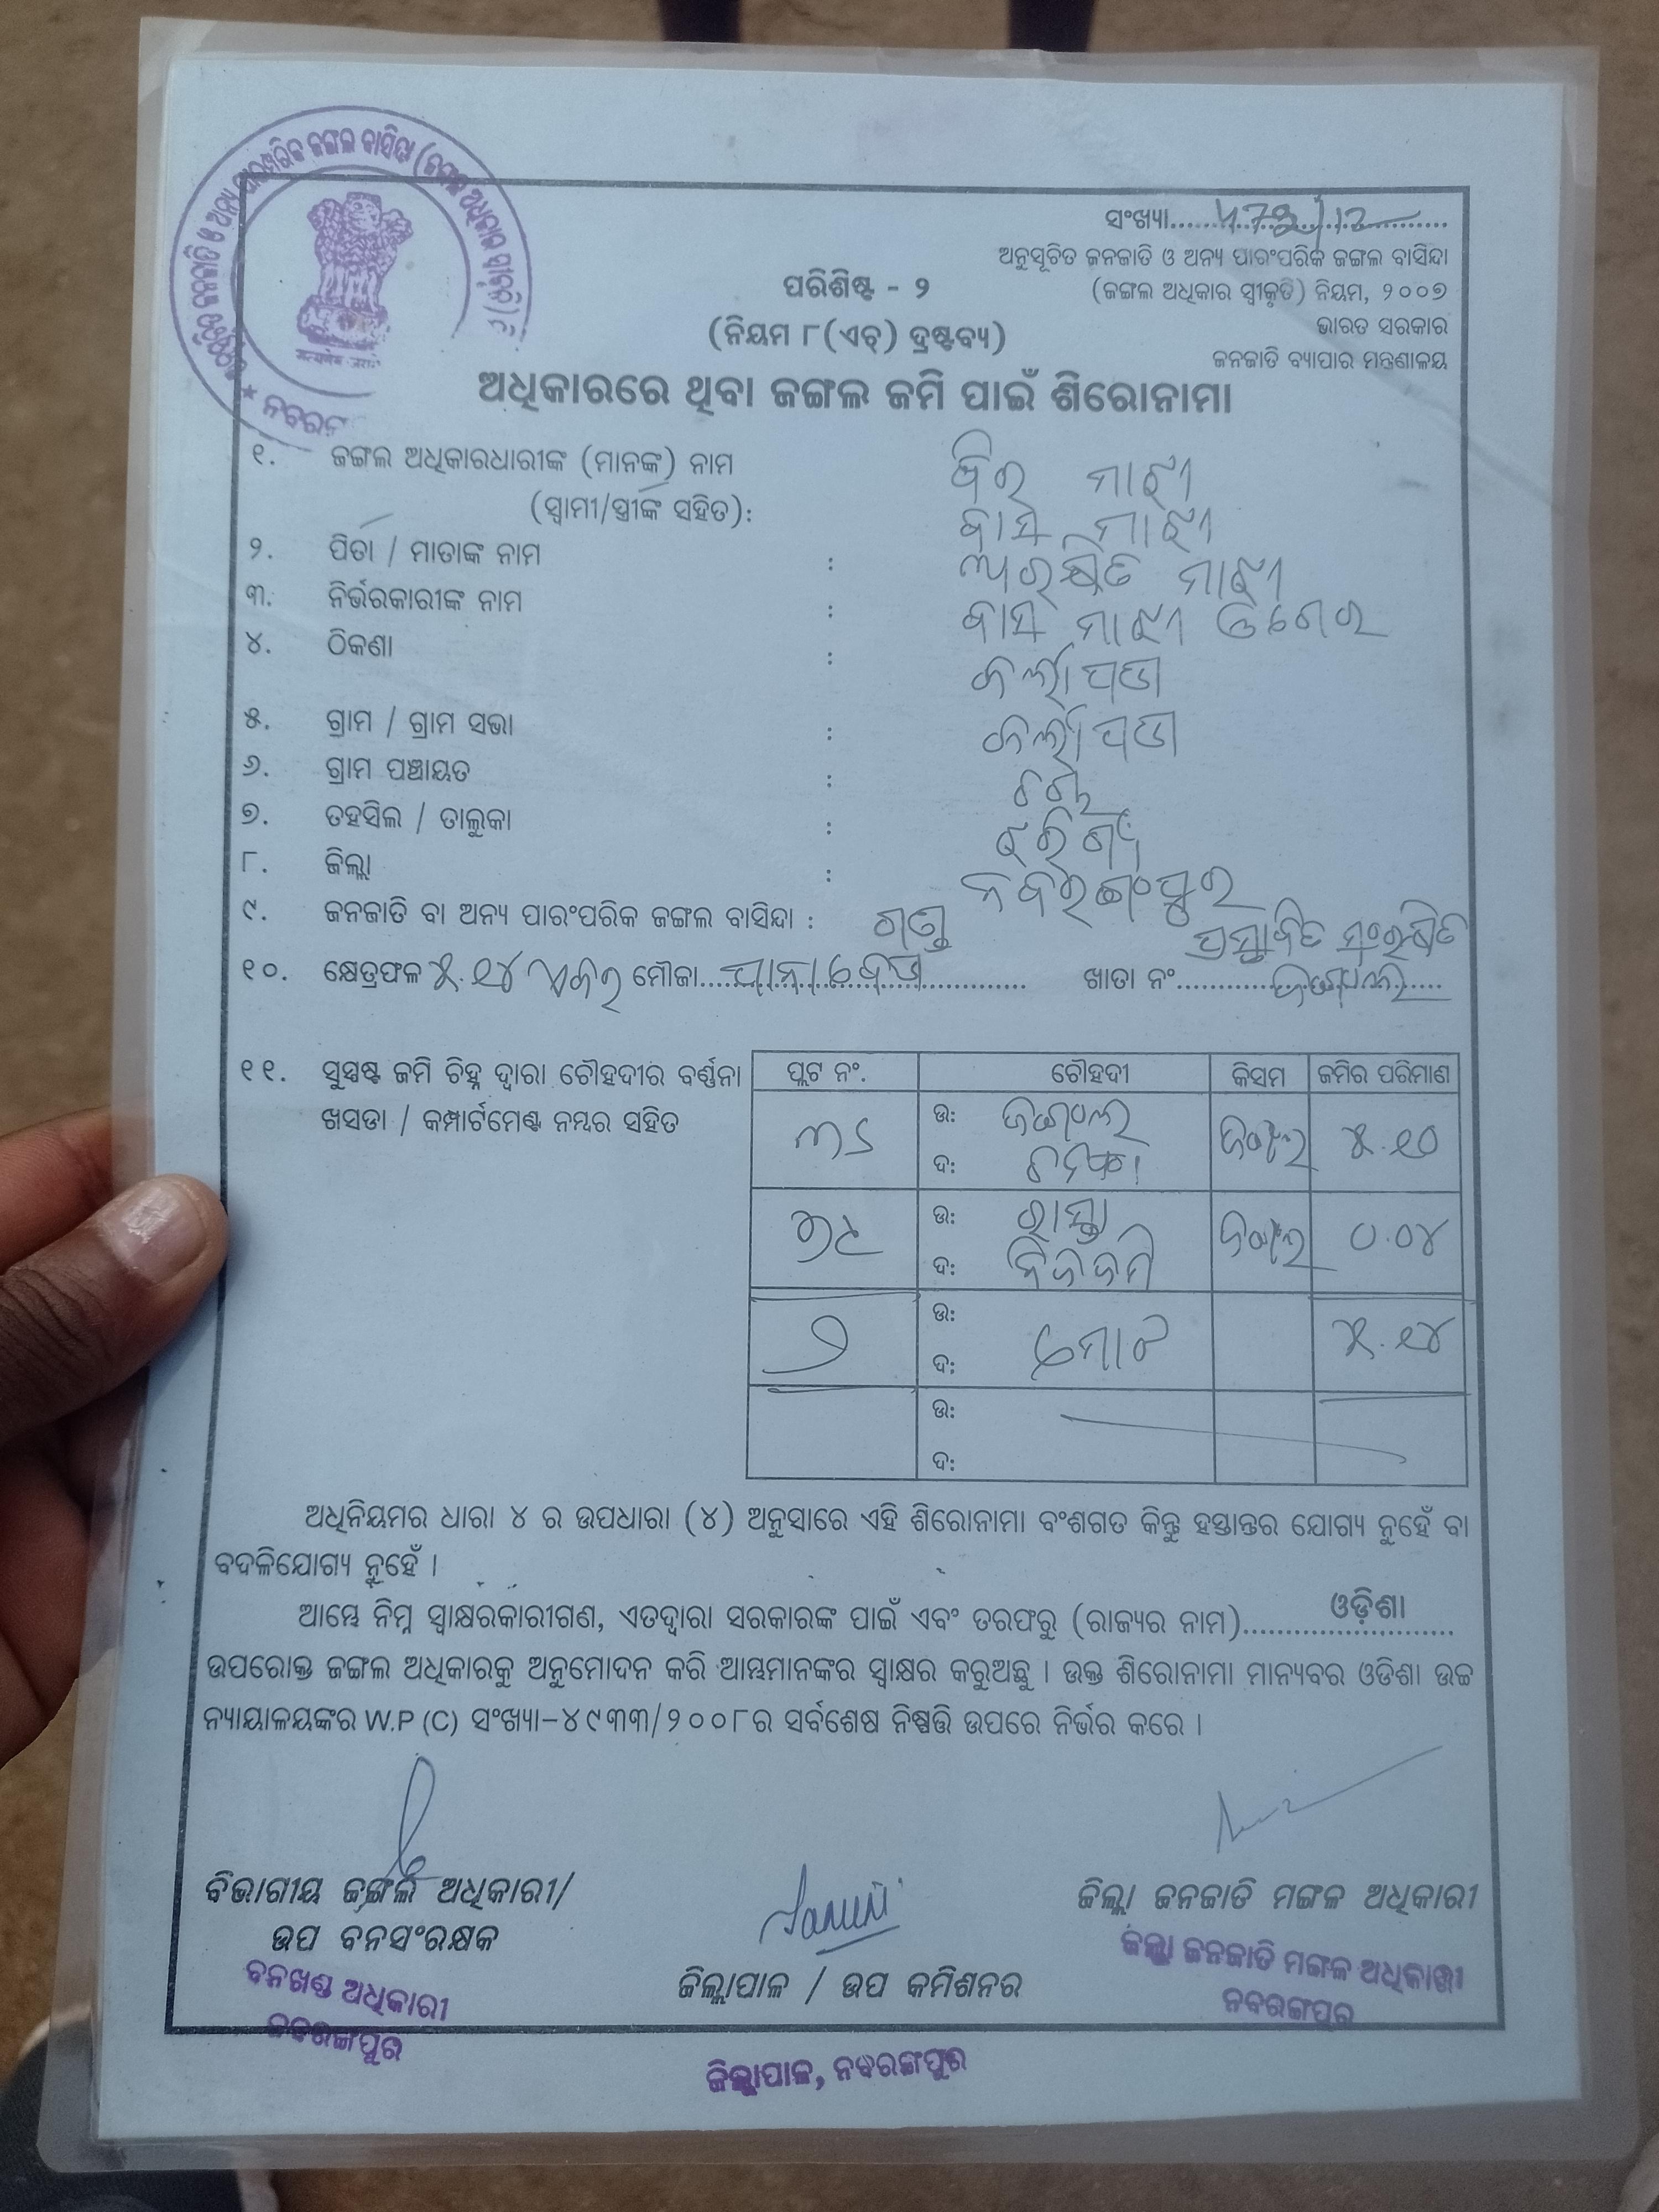 ସଂଖ୍ୟା
ଅନୁସୂଚିତ ଜନଜାତି ଓ ଅନ୍ୟ ପାରଂପରିକ ଜଙ୍ଗଲ ବାସିନ୍ଦା
(ଜଙ୍ଗଲ ଅଧିକାର ସ୍ୱୀକୃତି) ନିୟମ, ୨୦୦୭
ଭାରତ ସରକାର
ଜନଜାତି ବ୍ୟାପାର ମନ୍ତ୍ରଣାଳୟ
ପରିଶିଷ୍ଟ - ୨
(ନିୟମ ୮(ଏଚ୍) ଦ୍ରଷ୍ଟବ୍ୟ)
ଅଧିକାରରେ ଥିବା ଜଙ୍ଗଲ ଜମି ପାଇଁ ଶିରୋନାମା
୧. ଜଙ୍ଗଲ ଅଧିକାରଧାରୀଙ୍କ (ମାନଙ୍କ) ନାମ ମାଝୀ
(ସ୍ୱାମୀ/ସ୍ତ୍ରୀଙ୍କ ସହିତ): ମାଝୀ
୨. ପିତା / ମାତାଙ୍କ ନାମ : ମାଝୀ
୩. ନିର୍ଭରକାରୀଙ୍କ ନାମ : ମାଝୀ
୪. ଠିକଣା :
୫. ଗ୍ରାମ / ଗ୍ରାମ ସଭା :
୬. ଗ୍ରାମ ପଞ୍ଚାୟତ :
୭. ତହସିଲ / ତାଲୁକା : ଝରିଗାଁ
୮. ଜିଲ୍ଲା : ନବରଙ୍ଗପୁର
୯. ଜନଜାତି ବା ଅନ୍ୟ ପାରଂପରିକ ଜଙ୍ଗଲ ବାସିନ୍ଦା : ଗଣ୍ଡ ପ୍ରସ୍ତାବିତ ସଂରକ୍ଷିତ
୧୦. କ୍ଷେତ୍ରଫଳ ୫.୧୪ ଏକର ମୌଜା ଖାତା ନଂ ଜଙ୍ଗଲ
୧୧. ସୁସ୍ପଷ୍ଟ ଜମି ଚିହ୍ନ ଦ୍ୱାରା ଚୌହଦୀର ବର୍ଣ୍ଣନା
ଖସଡା / କମ୍ପାର୍ଟମେଣ୍ଟ ନମ୍ବର ସହିତ
ପ୍ଲଟ ନଂ. ଚୌହଦୀ କିସମ ଜମିର ପରିମାଣ
ଉ: ଜଙ୍ଗଲ ଜଙ୍ଗଲ ୫.୧୦
ଦ:
ଉ: ରାସ୍ତା ଜଙ୍ଗଲ ୦.୦୪
ଦ: ନିଜଜମି
୨ ଉ: ମୋଟ ୫.୧୪
ଦ:
ଉ:
ଦ:
ଅଧିନିୟମର ଧାରା ୪ ର ଉପଧାରା (୪) ଅନୁସାରେ ଏହି ଶିରୋନାମା ବଂଶଗତ କିନ୍ତୁ ହସ୍ତାନ୍ତର ଯୋଗ୍ୟ ନୁହେଁ ବା
ବଦଳିଯୋଗ୍ୟ ନୁହେଁ ।
ଆମ୍ଭେ ନିମ୍ନ ସ୍ୱାକ୍ଷରକାରୀଗଣ, ଏତଦ୍ୱାରା ସରକାରଙ୍କ ପାଇଁ ଏବଂ ତରଫରୁ (ରାଜ୍ୟର ନାମ) ଓଡ଼ିଶା
ଉପରୋକ୍ତ ଜଙ୍ଗଲ ଅଧିକାରକୁ ଅନୁମୋଦନ କରି ଆମ୍ଭମାନଙ୍କର ସ୍ୱାକ୍ଷର କରୁଅଛୁ । ଉକ୍ତ ଶିରୋନାମା ମାନ୍ୟବର ଓଡିଶା ଉଚ୍ଚ
ନ୍ୟାୟାଳୟଙ୍କର W.P (C) ସଂଖ୍ୟା-୪୯୩୩/୨୦୦୮ର ସର୍ବଶେଷ ନିଷ୍ପତ୍ତି ଉପରେ ନିର୍ଭର କରେ ।
ବିଭାଗୀୟ ଜଙ୍ଗଲ ଅଧିକାରୀ/
ଉପ ବନସଂରକ୍ଷକ
ବନଖଣ୍ଡ ଅଧିକାରୀ
ନବରଙ୍ଗପୁର
ଜିଲ୍ଲାପାଳ / ଉପ କମିଶନର
ଜିଲ୍ଲାପାଳ, ନବରଙ୍ଗପୁର
ଜିଲ୍ଲା ଜନଜାତି ମଙ୍ଗଳ ଅଧିକାରୀ
ଜିଲ୍ଲା ଜନଜାତି ମଙ୍ଗଳ ଅଧିକାରୀ
ନବରଙ୍ଗପୁର